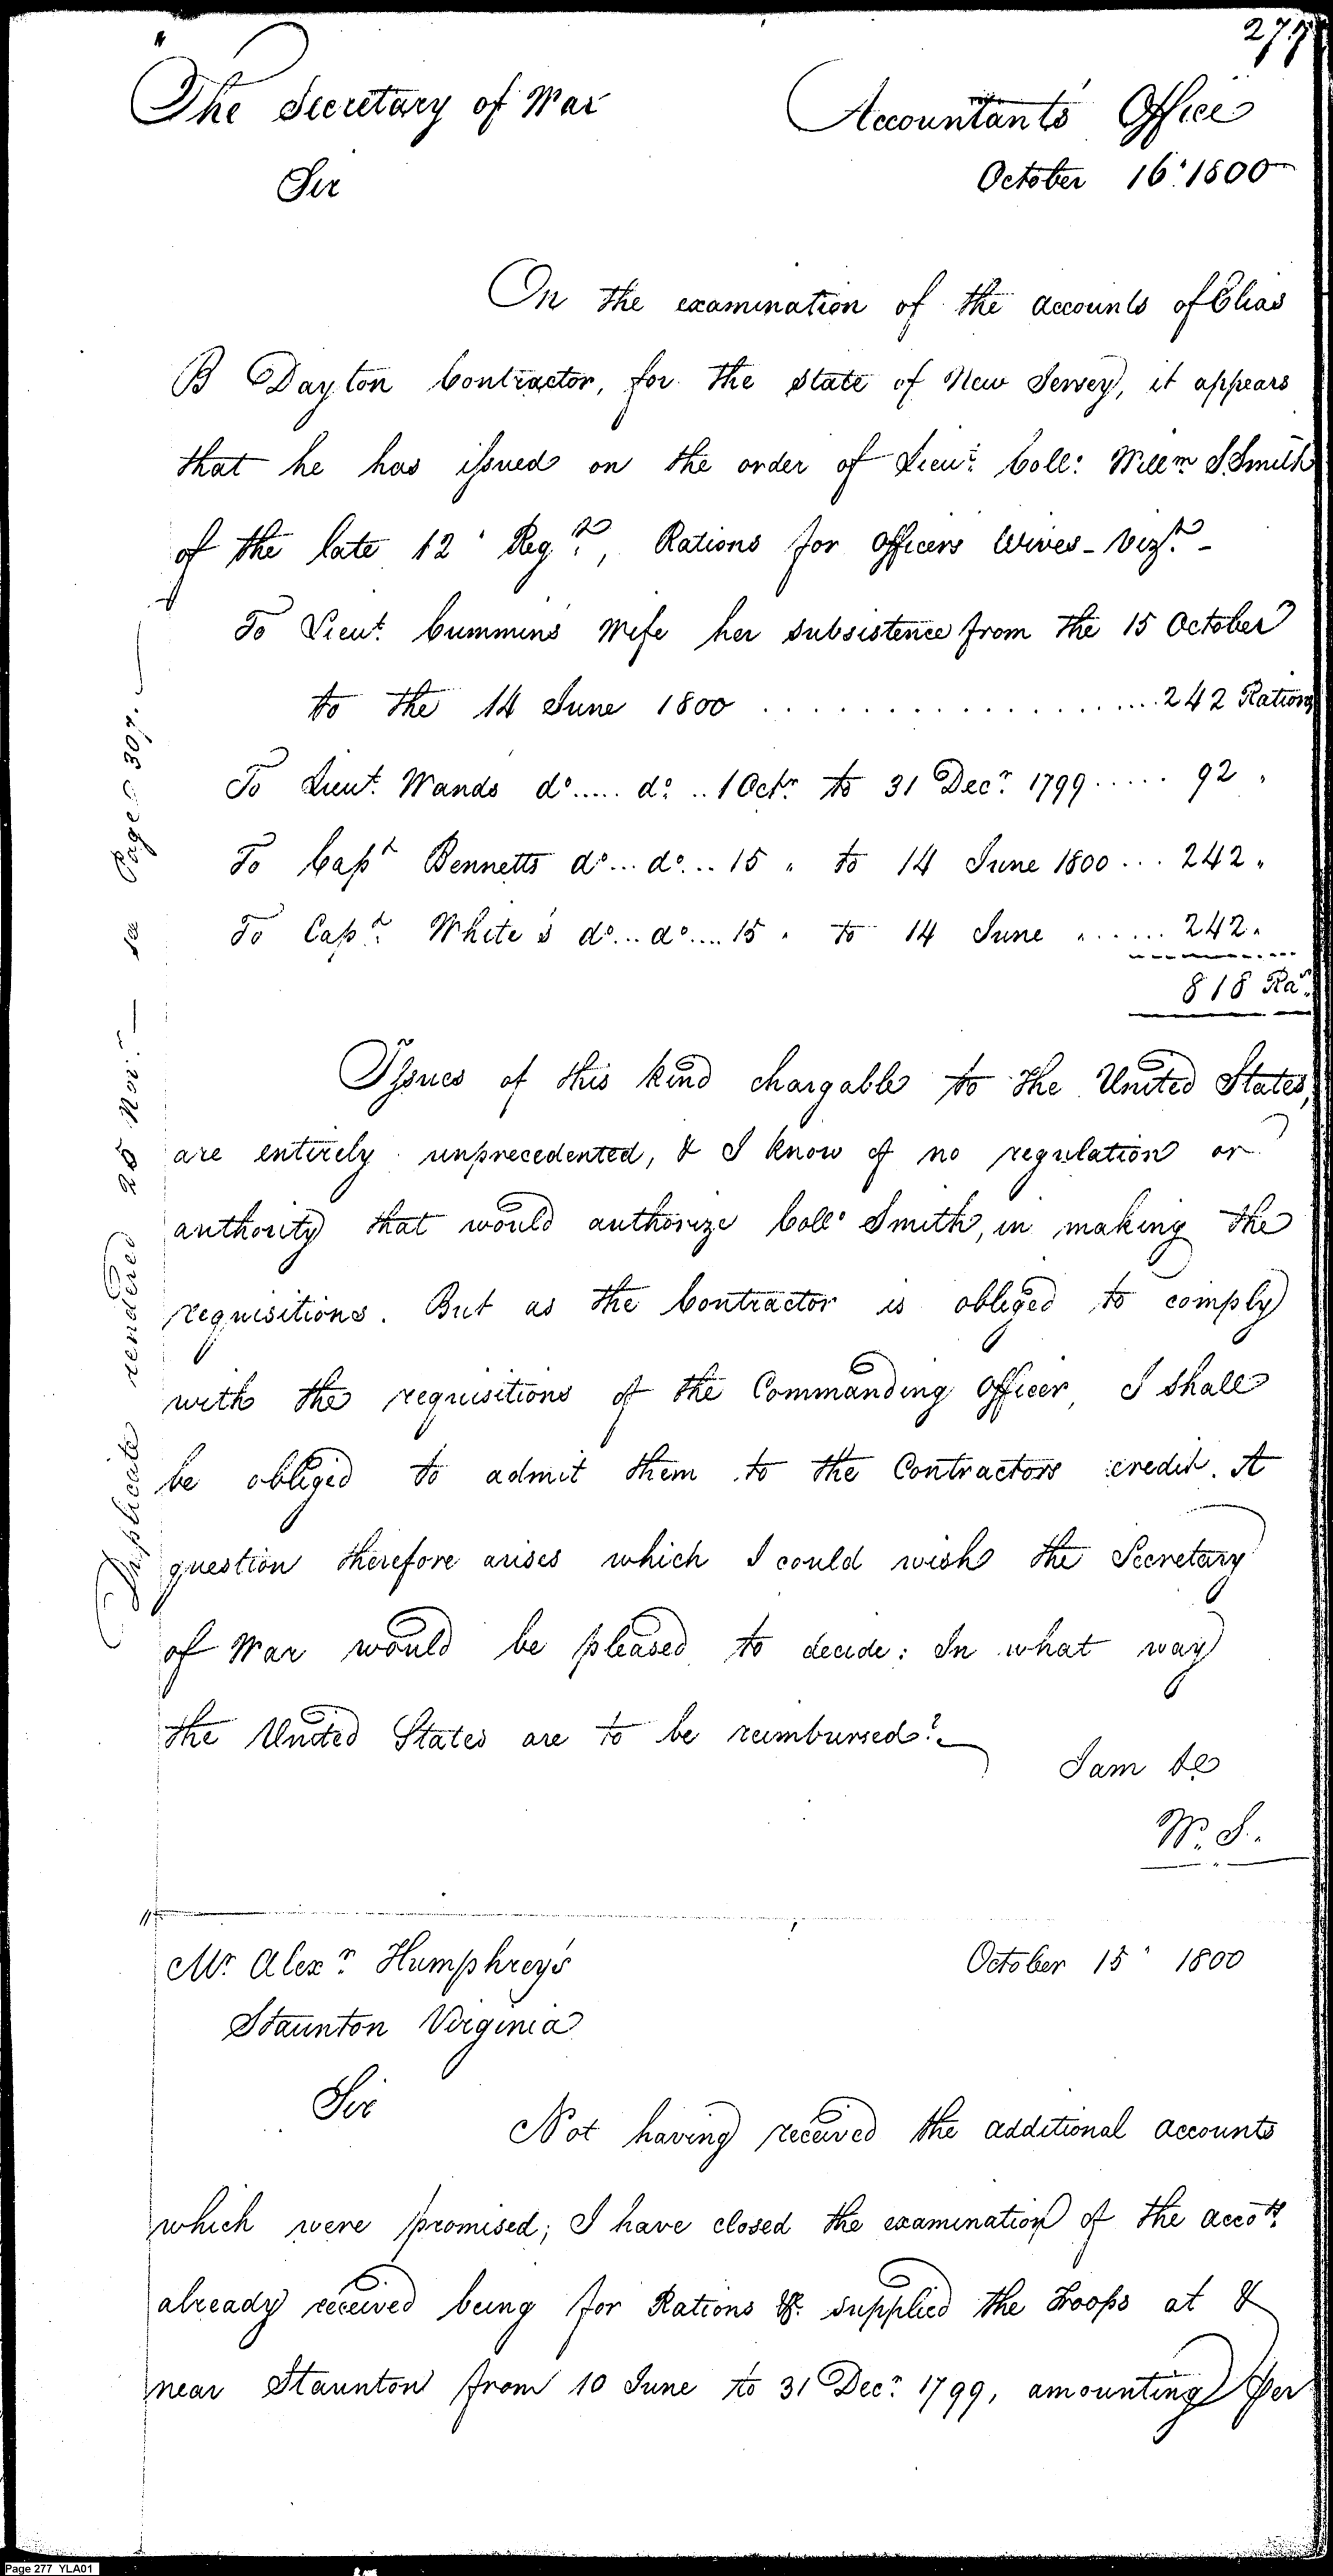 277
The Secretary of War
Accountant's Office
Sir
October 16. 1800
On the examination of the accounts of Elias
B Dayton Contractor, for the State of New Jersey, it appears
that he has issued on the order of Lieut. Coll: Willm S. Smith
of the late 12 Regt., Rations for officers Wives - Vizt. -
To Lieut. Cummins Wife her subsistence from the 15 October
to the 14 June 1800 .................... 242 Rations
To Lieut. Wands do..... do. .. 1 Octr. to 31 Decr. 1799 ..... 92 "
To Capt Bennetts do... do... 15 " to 14 June 1800 ... 242 "
To Capt. White's do... do.... 15 " to 14 June " ...... 242 "
818 Ras.
Issues of this kind chargable to the United States,
are entirely unprecedented, & I know of no regulation or
authority that would authorize Coll. Smith, in making the
requisitions. But as the Contractor is obliged to comply
with the requisitions of the Commanding officer, I shall
be obliged to admit them to the Contractors credit. A
question therefore arises which I could wish the Secretary
of War would be pleased to decide: In what way
the United States are to be reimbursed?
I am &c
W. S.
Duplicate rendered 25 Nov. — see Page 307. —
Mr. Alexr. Humphrey's
October 15 1800
Staunton Virginia
Sir
Not having received the additional accounts
which were promised; I have closed the examination of the accots.
already received being for Rations &c. supplied the Troops at &
near Staunton from 10 June to 31 Decr. 1799, amounting per
Page 277 YLA01